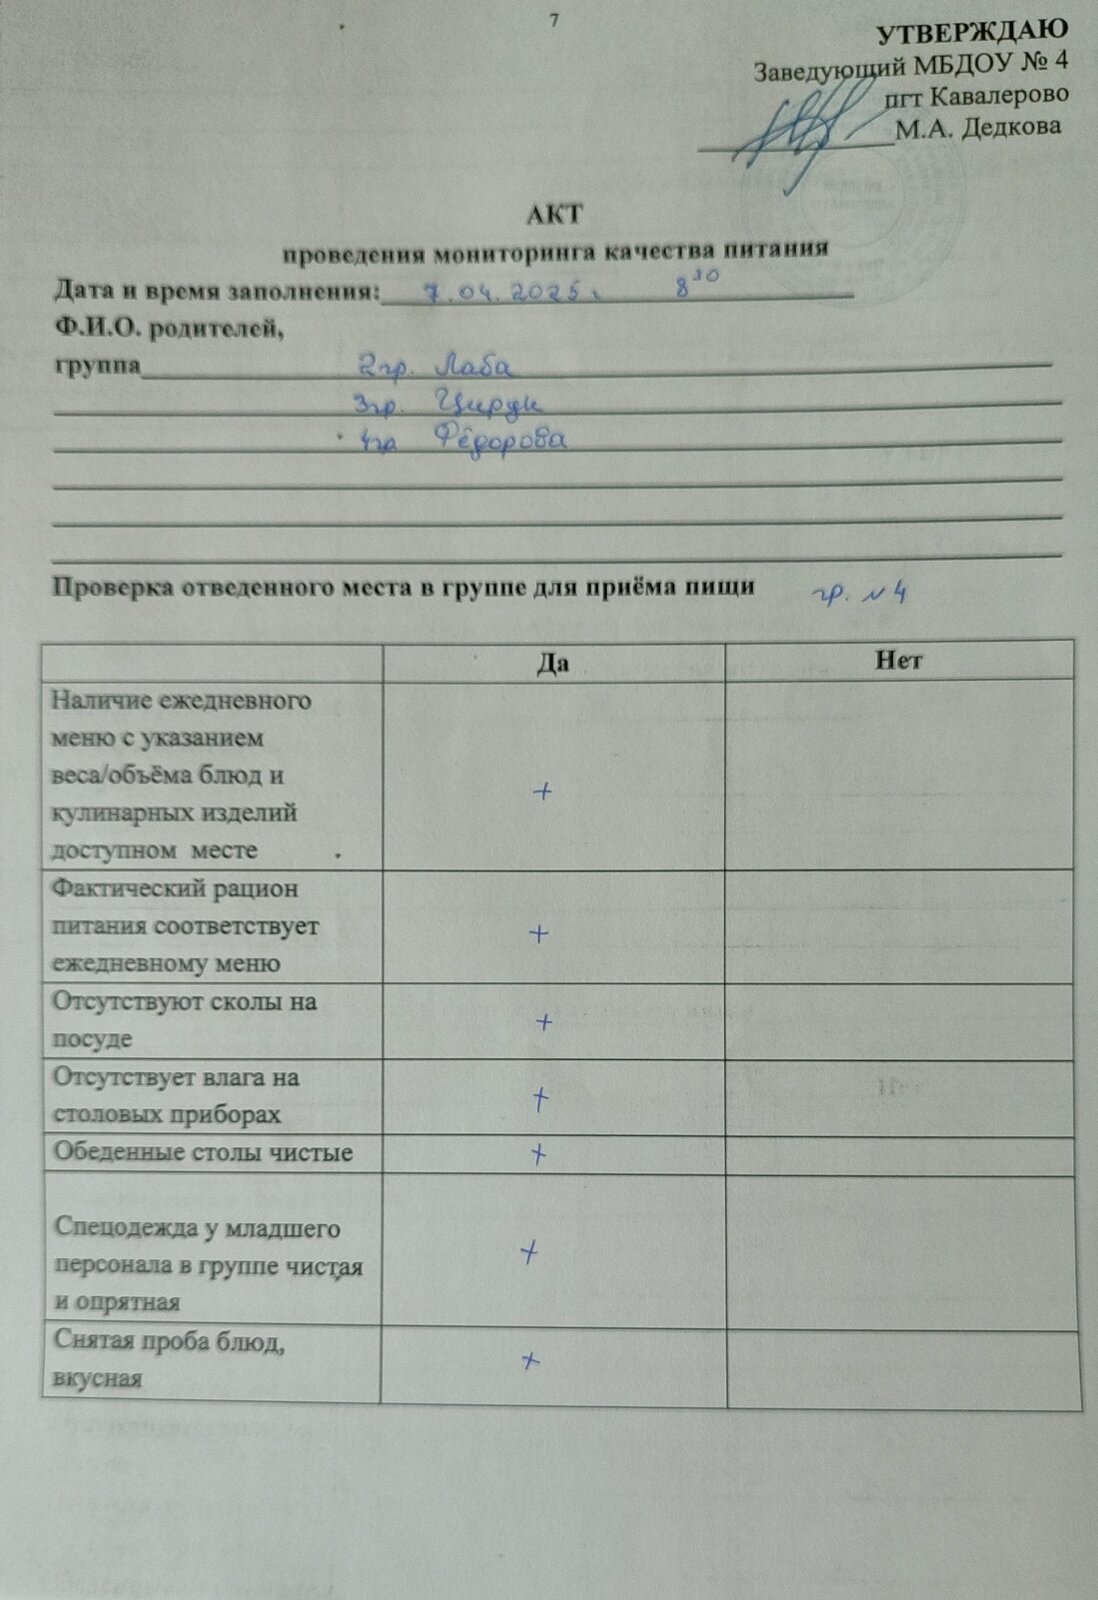 7
УТВЕРЖДАЮ
Заведующий МБДОУ № 4
пгт Кавалерово
М.А. Дедкова
АКТ
проведения мониторинга качества питания
Дата и время заполнения: 7.04.2025 г 8 30
Ф.И.О. родителей,
группа 2гр. Лаба
3гр.
4гр Фёдорова
Проверка отведенного места в группе для приёма пищи гр. № 4
Да Нет
Наличие ежедневного
меню с указанием
веса/объёма блюд и
кулинарных изделий +
доступном месте
Фактический рацион
питания соответствует +
ежедневному меню
Отсутствуют сколы на +
посуде
Отсутствует влага на +
столовых приборах
Обеденные столы чистые +
Спецодежда у младшего
персонала в группе чистая +
и опрятная
Снятая проба блюд, +
вкусная